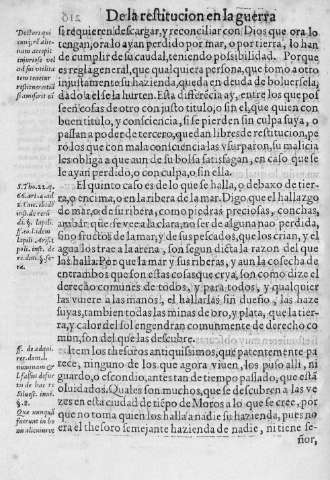 De la restitucion en la guerra
si requieren descargar, y reconciliar con Dios que ora lo
tengan, ora lo ayan perdido por mar, o por tierra, lo han
de cumplir de su caudal, teniendo possibilidad. Porque
es regla general, que qualquiera persona, que tomo a otro
injustamente su hazienda, queda en deuda de boluersela,
dado a el se la hurten. Esta differécia ay, entre los que pos
seen cosas de otro con justo titulo, o sin el, que quien con
buen titulo, y consciencia, si se pierden sin culpa suya, o
passan a poder de tercero, quedan libres de restitucion, pe
ro los que con mala consciencia las vsurparon, su malicia
les obliga a que aun de su bolsa satisfagan, en caso que se
le ayan perdido, o con culpa, o sin ella.
El quinto caso es de lo que se halla, o debaxo de tier-
ra, o encima, o en la ribera de la mar. Digo que el hallazgo
de mar, o de su ribera, como piedras preciosas, conchas,
ambar que se vea a la clara, no ser de alguna nao perdida,
sino fructos de la mar, y de sus pescados, que los crian, y el
agua los trae a la arena, son segun dicta la razon del que
las halla. Por que la mar y sus riberas, y aun la cosecha de
entrambos que son estas cosas que crya, son como dize el
derecho comunes de todos, y para todos, y qualquier
las viniere a las manos, el hallarlas sin dueño, las haze
suyas, tambien todas las minas de oro, y plata, que la tier-
ra, y calor del sol engendran comunmente de derecho co
mun, son del que las descubre.
Item los thesoros antiquissimos, que patentemente pa
rece, ninguno de los que agora viuen, los puso alli, ni
guardo, o escondio, antes tan de tiempo passado, que està
oluidados. Quales son muchos, que se descubren a las ve
zes en esta ciudad de tiépo de Moros a lo que se cree, por
que no toma quien los halla a nadie su hazienda, pues no
era el thesoro semejante hazienda de nadie, ni tiene se-
ñor,